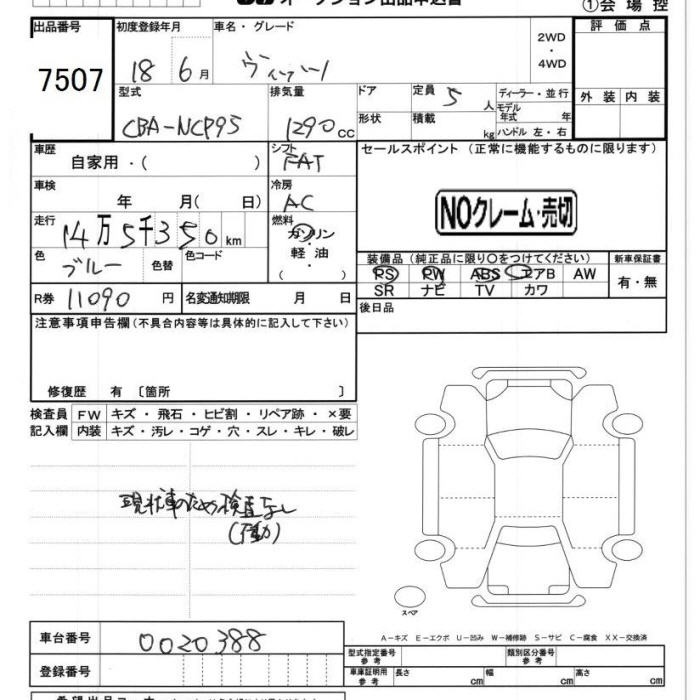 ①会 場 控
出品番号 初度登録年月 車名・グレード
評 価 点
2WD
・
4WD
7507
18 6月
型式 排気量 ドア 定員 5人 ディーラー・並行
外 装 内 装
CBA-NCP95 1290cc 形状 積載 kg モデル年式 年
ハンドル 左・右
車歴 自家用・( ) シフト FAT
セールスポイント (正常に機能するものに限ります)
車検 年 月( 日) 冷房 AC
NOクレーム・売切
走行 14万5千350km 燃料 ガソリン
軽 油
・( )
色 ブルー 色替 色コード
装備品 (純正品に限り○をつけてください) 新車保証書
PS PW ABS エアB AW 有・無
SR ナビ TV カワ
R券 11090円 名変通知期限 月 日
後日品
注意事項申告欄(不具合内容等は具体的に記入して下さい)
修復歴 有 〔箇所 〕
検査員 FW キズ ・ 飛石 ・ ヒビ割 ・ リペア跡 ・ ×要
記入欄 内装 キズ・汚レ・コゲ・穴・スレ・キレ・破レ
現状車のため検査なし
(不動)
スペア
A-キズ E-エクボ U-凹み W-補修跡 S-サビ C-腐食 XX-交換済
車台番号 0020388
型式指定番号 参考 類別区分番号 参考
登録番号
車庫証明用 参考 長さ cm 幅 cm 高さ cm